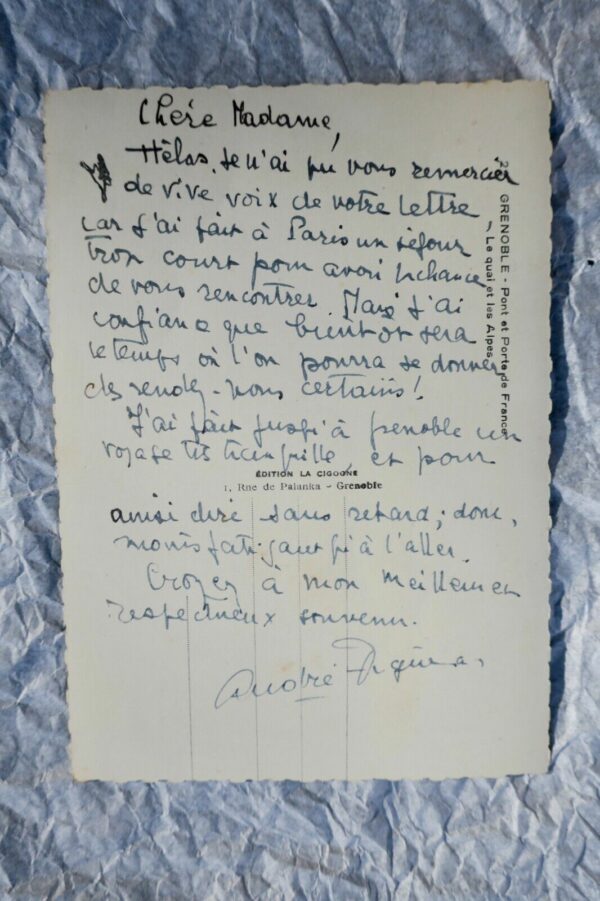 Chère Madame,
Hélas, je n'ai pu vous remercier
de vive voix de votre lettre
car j'ai fait à Paris un séjour
trop court pour avoir la chance
de vous rencontrer. Mais j'ai
confiance que bientôt sera
le temps où l'on pourra se donner
des rendez-vous certains!
J'ai fait jusqu'à Grenoble un
voyage très tranquille, et pour
ÉDITION LA CIGOGNE
1, Rue de Palanka - Grenoble
ainsi dire sans retard; donc,
moins fatigant qu'à l'aller.
Croyez à mon meilleur et
respectueux souvenir.
André
GRENOBLE - Pont et Porte de France
Le quai et les Alpes